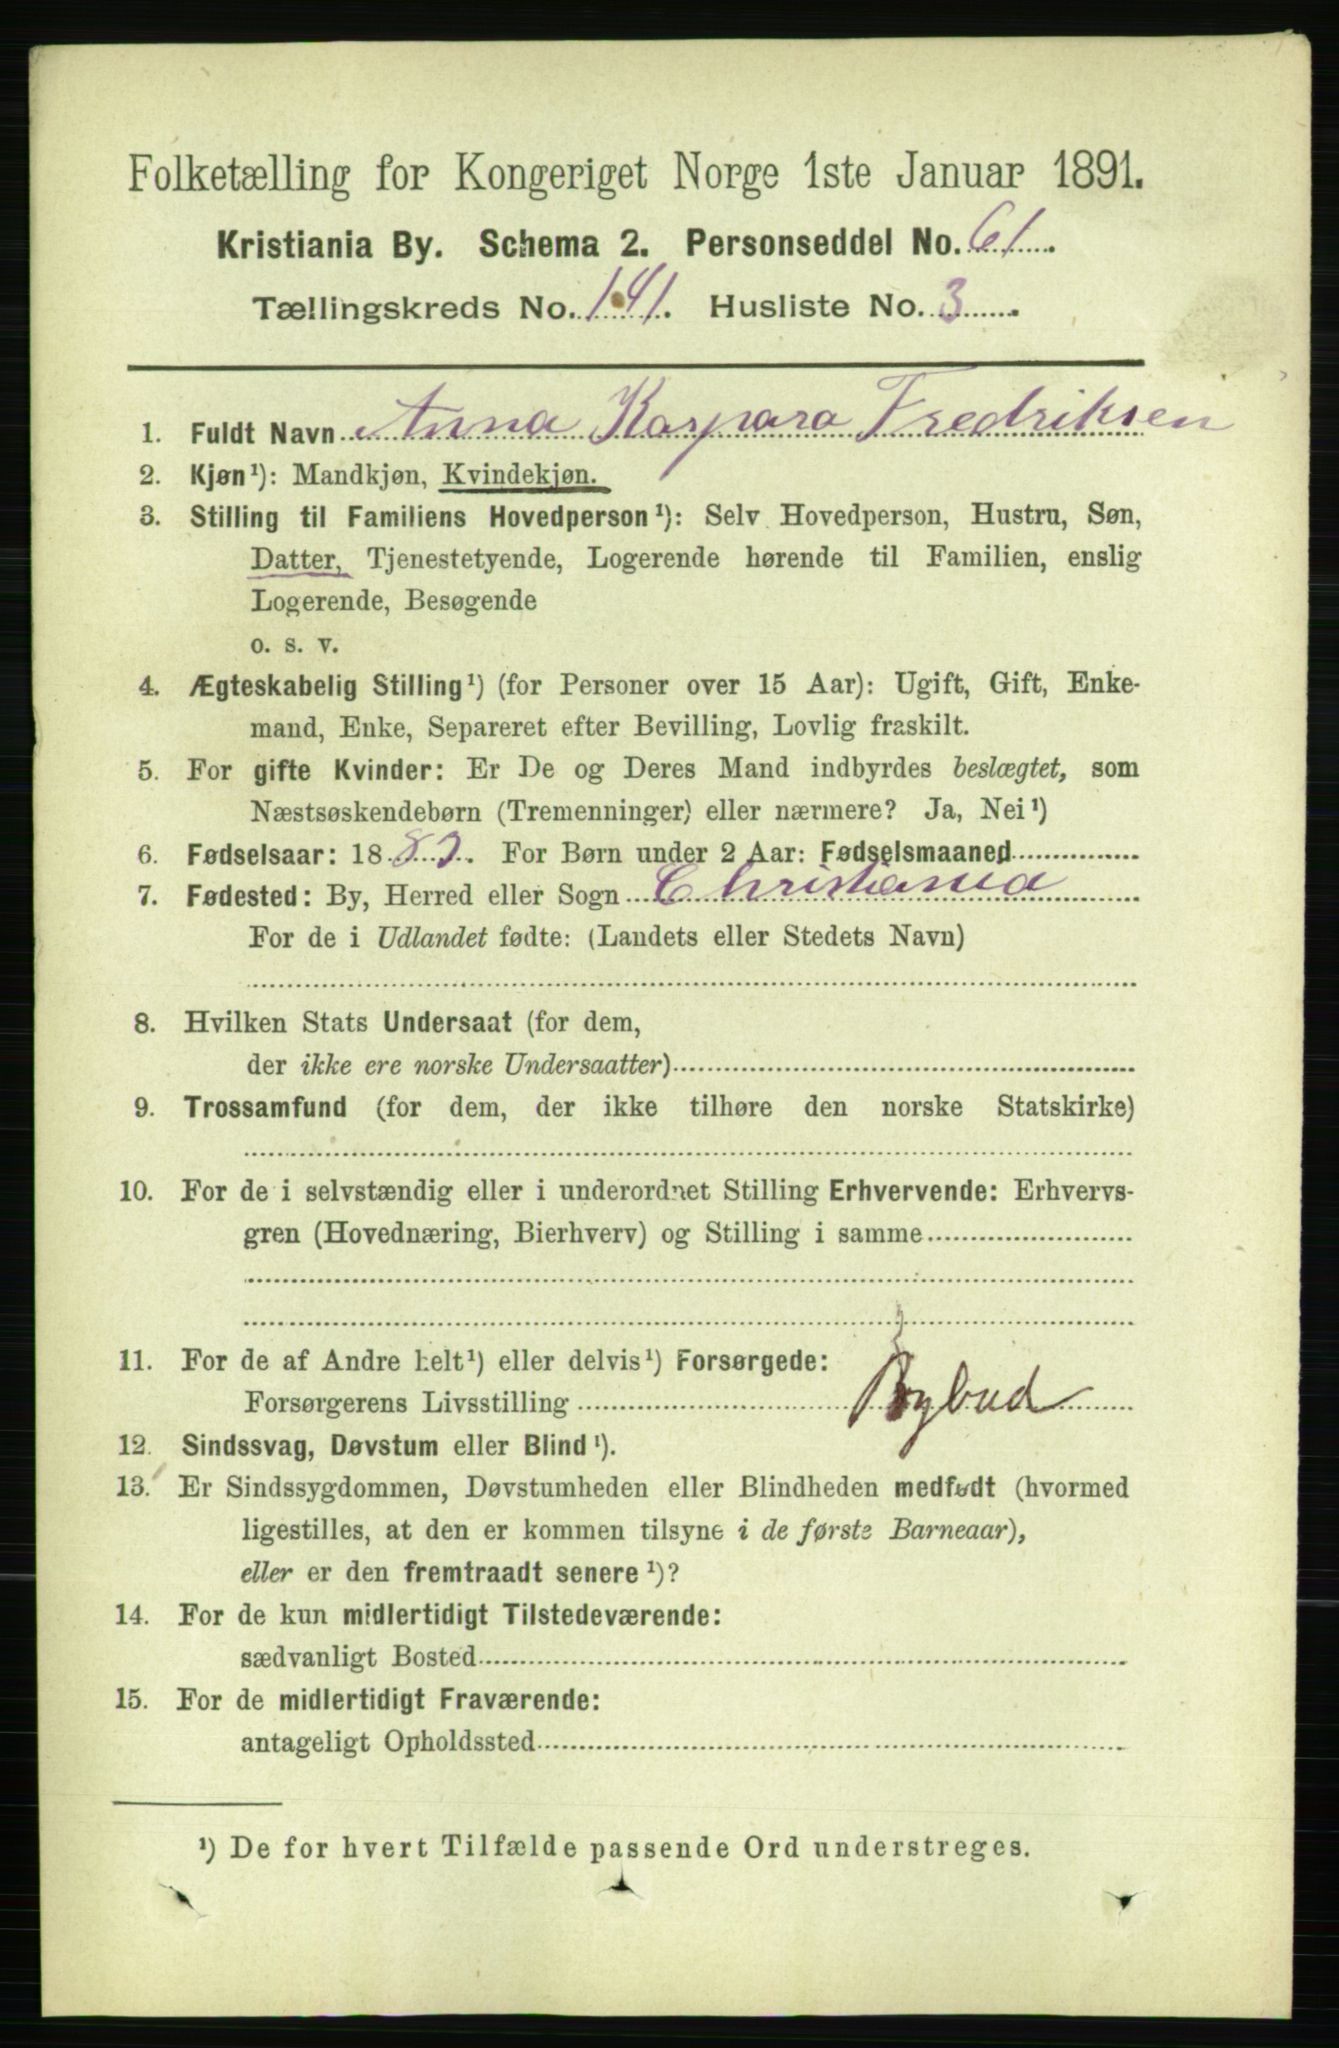 Folketælling for Kongeriget Norge 1ste Januar 1891.
Kristiania By. Schema 2. Personseddel No. 61.
Tællingskreds No. 141. Husliste No. 3.
1. Fuldt Navn Anna Kaspara Fredriksen
2. Kjøn¹): Mandkjøn, Kvindekjøn.
3. Stilling til Familiens Hovedperson¹): Selv Hovedperson, Hustru, Søn,
Datter, Tjenestetyende, Logerende hørende til Familien, enslig
Logerende, Besøgende
o. s. v.
4. Ægteskabelig Stilling¹) (for Personer over 15 Aar): Ugift, Gift, Enke-
mand, Enke, Separeret efter Bevilling, Lovlig fraskilt.
5. For gifte Kvinder: Er De og Deres Mand indbyrdes beslægtet, som
Næstsøskendebørn (Tremenninger) eller nærmere? Ja, Nei¹)
6. Fødselsaar: 18 . For Børn under 2 Aar: Fødselsmaaned
7. Fødested: By, Herred eller Sogn Christiania
For de i Udlandet fødte: (Landets eller Stedets Navn)
8. Hvilken Stats Undersaat (for dem,
der ikke ere norske Undersaatter)
9. Trossamfund (for dem, der ikke tilhøre den norske Statskirke)
10. For de i selvstændig eller i underordnet Stilling Erhvervende: Erhvervs-
gren (Hovednæring, Bierhverv) og Stilling i samme
11. For de af Andre helt¹) eller delvis¹) Forsørgede:
Forsørgerens Livsstilling Bybud
12. Sindssvag, Døvstum eller Blind¹).
13. Er Sindssygdommen, Døvstumheden eller Blindheden medfødt (hvormed
ligestilles, at den er kommen tilsyne i de første Barneaar),
eller er den fremtraadt senere¹)?
14. For de kun midlertidigt Tilstedeværende:
sædvanligt Bosted
15. For de midlertidigt Fraværende:
antageligt Opholdssted
¹) De for hvert Tilfælde passende Ord understreges.